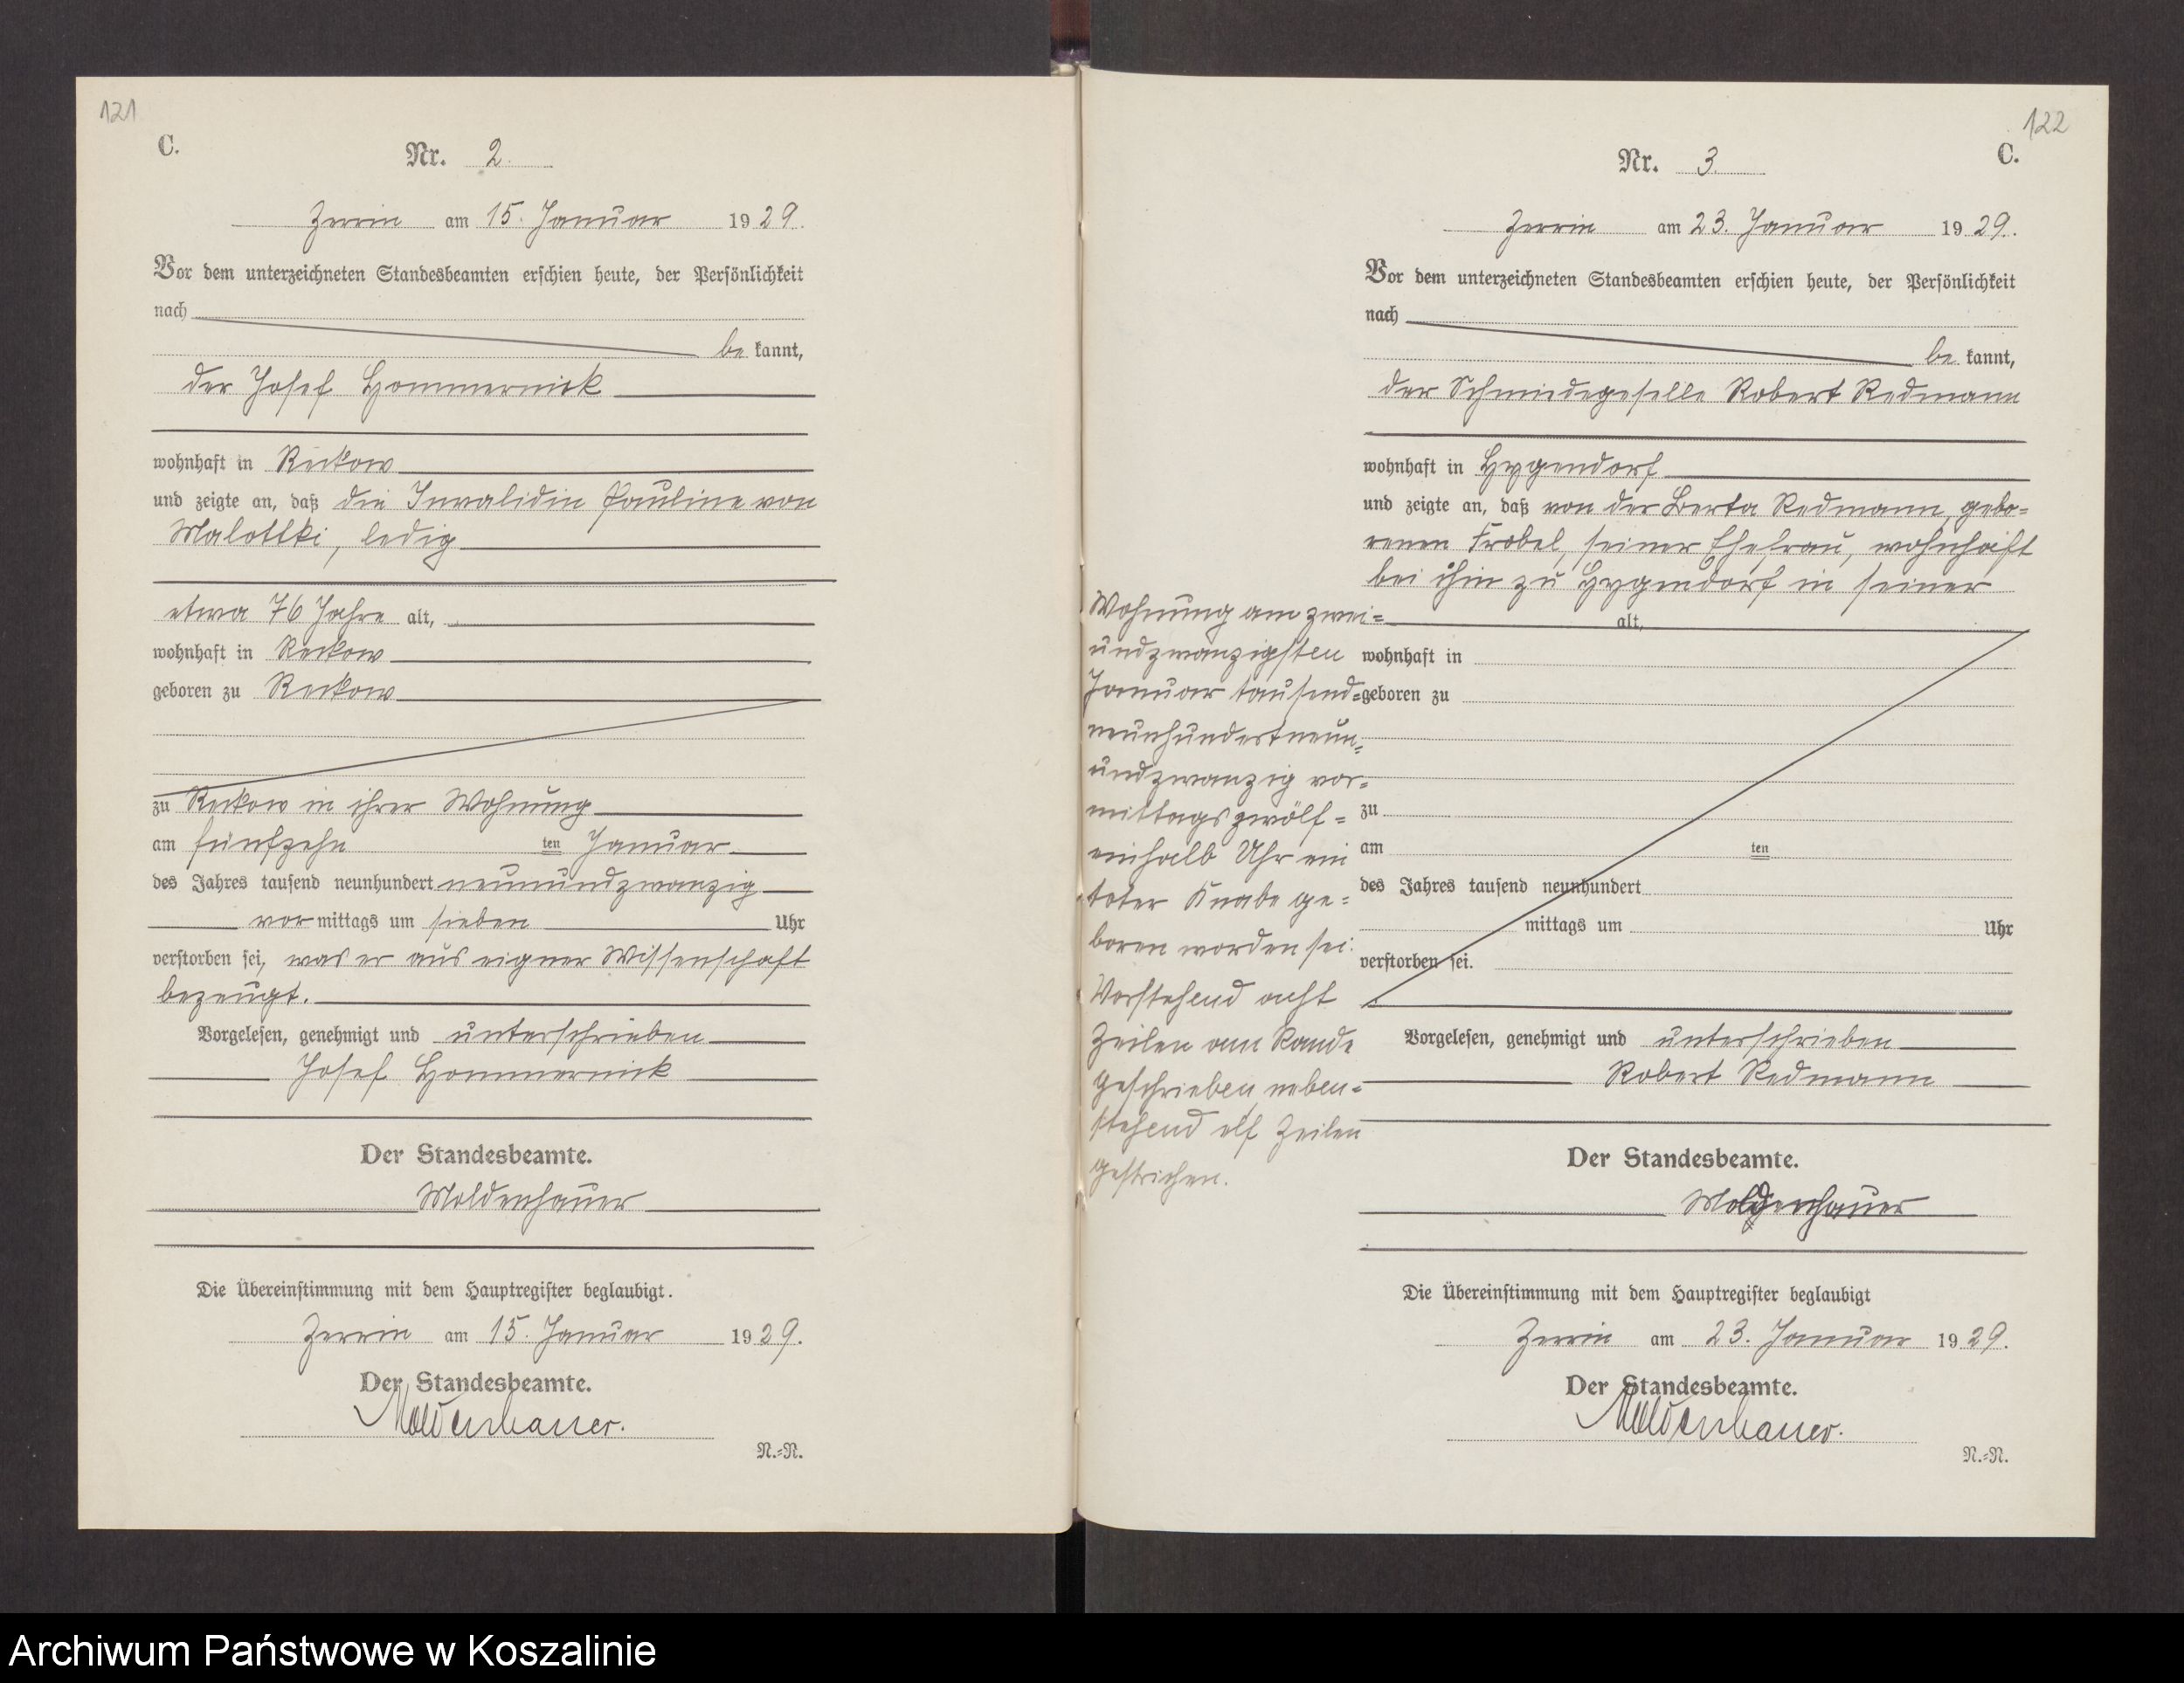 121
C.
Nr. 2.
Zerrin am 15. Januar 1929.
Vor dem unterzeichneten Standesbeamten erschien heute, der Persönlichkeit
nach
be kannt,
der Josef
wohnhaft in Reckow
und zeigte an, daß die Invalidin Pauline von
Malottki, ledig
etwa 76 Jahre alt,
wohnhaft in Reckow
geboren zu Reckow
zu Reckow in ihrer Wohnung
am fünfzehn ten Januar
des Jahres tausend neunhundert neunundzwanzig
vor mittags um sieben Uhr
verstorben sei, was er aus eigner Wissenschaft
bezeugt.
Vorgelesen, genehmigt und unterschrieben
Josef
Der Standesbeamte.
Moldenhauer
Die Übereinstimmung mit dem Hauptregister beglaubigt.
Zerrin am 15. Januar 1929.
Der Standesbeamte.
Moldenhauer.
N.=N.
122
C.
Nr. 3.
Zerrin am 23. Januar 1929.
Vor dem unterzeichneten Standesbeamten erschien heute, der Persönlichkeit
nach
be kannt,
der Schmiedegeselle Robert Redmann
wohnhaft in Hygendorf
und zeigte an, daß von der Berta Redmann, gebo=
renen Frobel, seiner Ehefrau, wohnhaft
bei ihm zu Hygendorf in seiner
Wohnung am zwei=
undzwanzigsten
Januar tausend=
neunhundertneun=
undzwanzig vor=
mittags zwölf=
einhalb Uhr ein
toter Knabe ge=
boren worden sei.
Vorstehend acht
Zeilen am Rande
geschrieben, neben=
stehend elf Zeilen
gestrichen.
alt,
wohnhaft in
geboren zu
zu
am ten
des Jahres tausend neunhundert
mittags um Uhr
verstorben sei.
Vorgelesen, genehmigt und unterschrieben
Robert Redmann
Der Standesbeamte.
Moldenhauer
Die Übereinstimmung mit dem Hauptregister beglaubigt
Zerrin am 23. Januar 1929.
Der Standesbeamte.
Moldenhauer.
N.=N.
Archiwum Państwowe w Koszalinie